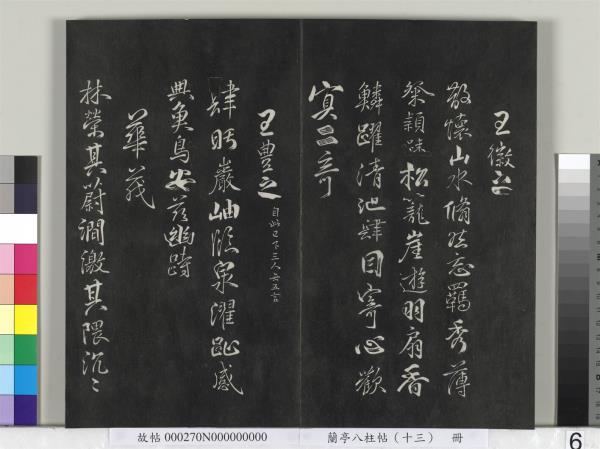 王徽之
散懷山水脩然忘羈秀薄
粲穎疎松籠崖遊羽扇霄
鱗躍清池肆目寄心歡
冥二奇
王豐之 自此已下三人无五言
肆眄巖岫臨泉濯趾感
興魚鳥安茲幽跱
華茂
林榮其蔚澗激其隈汎〻
故帖000270N000000000
蘭亭八柱帖（十三） 冊
6